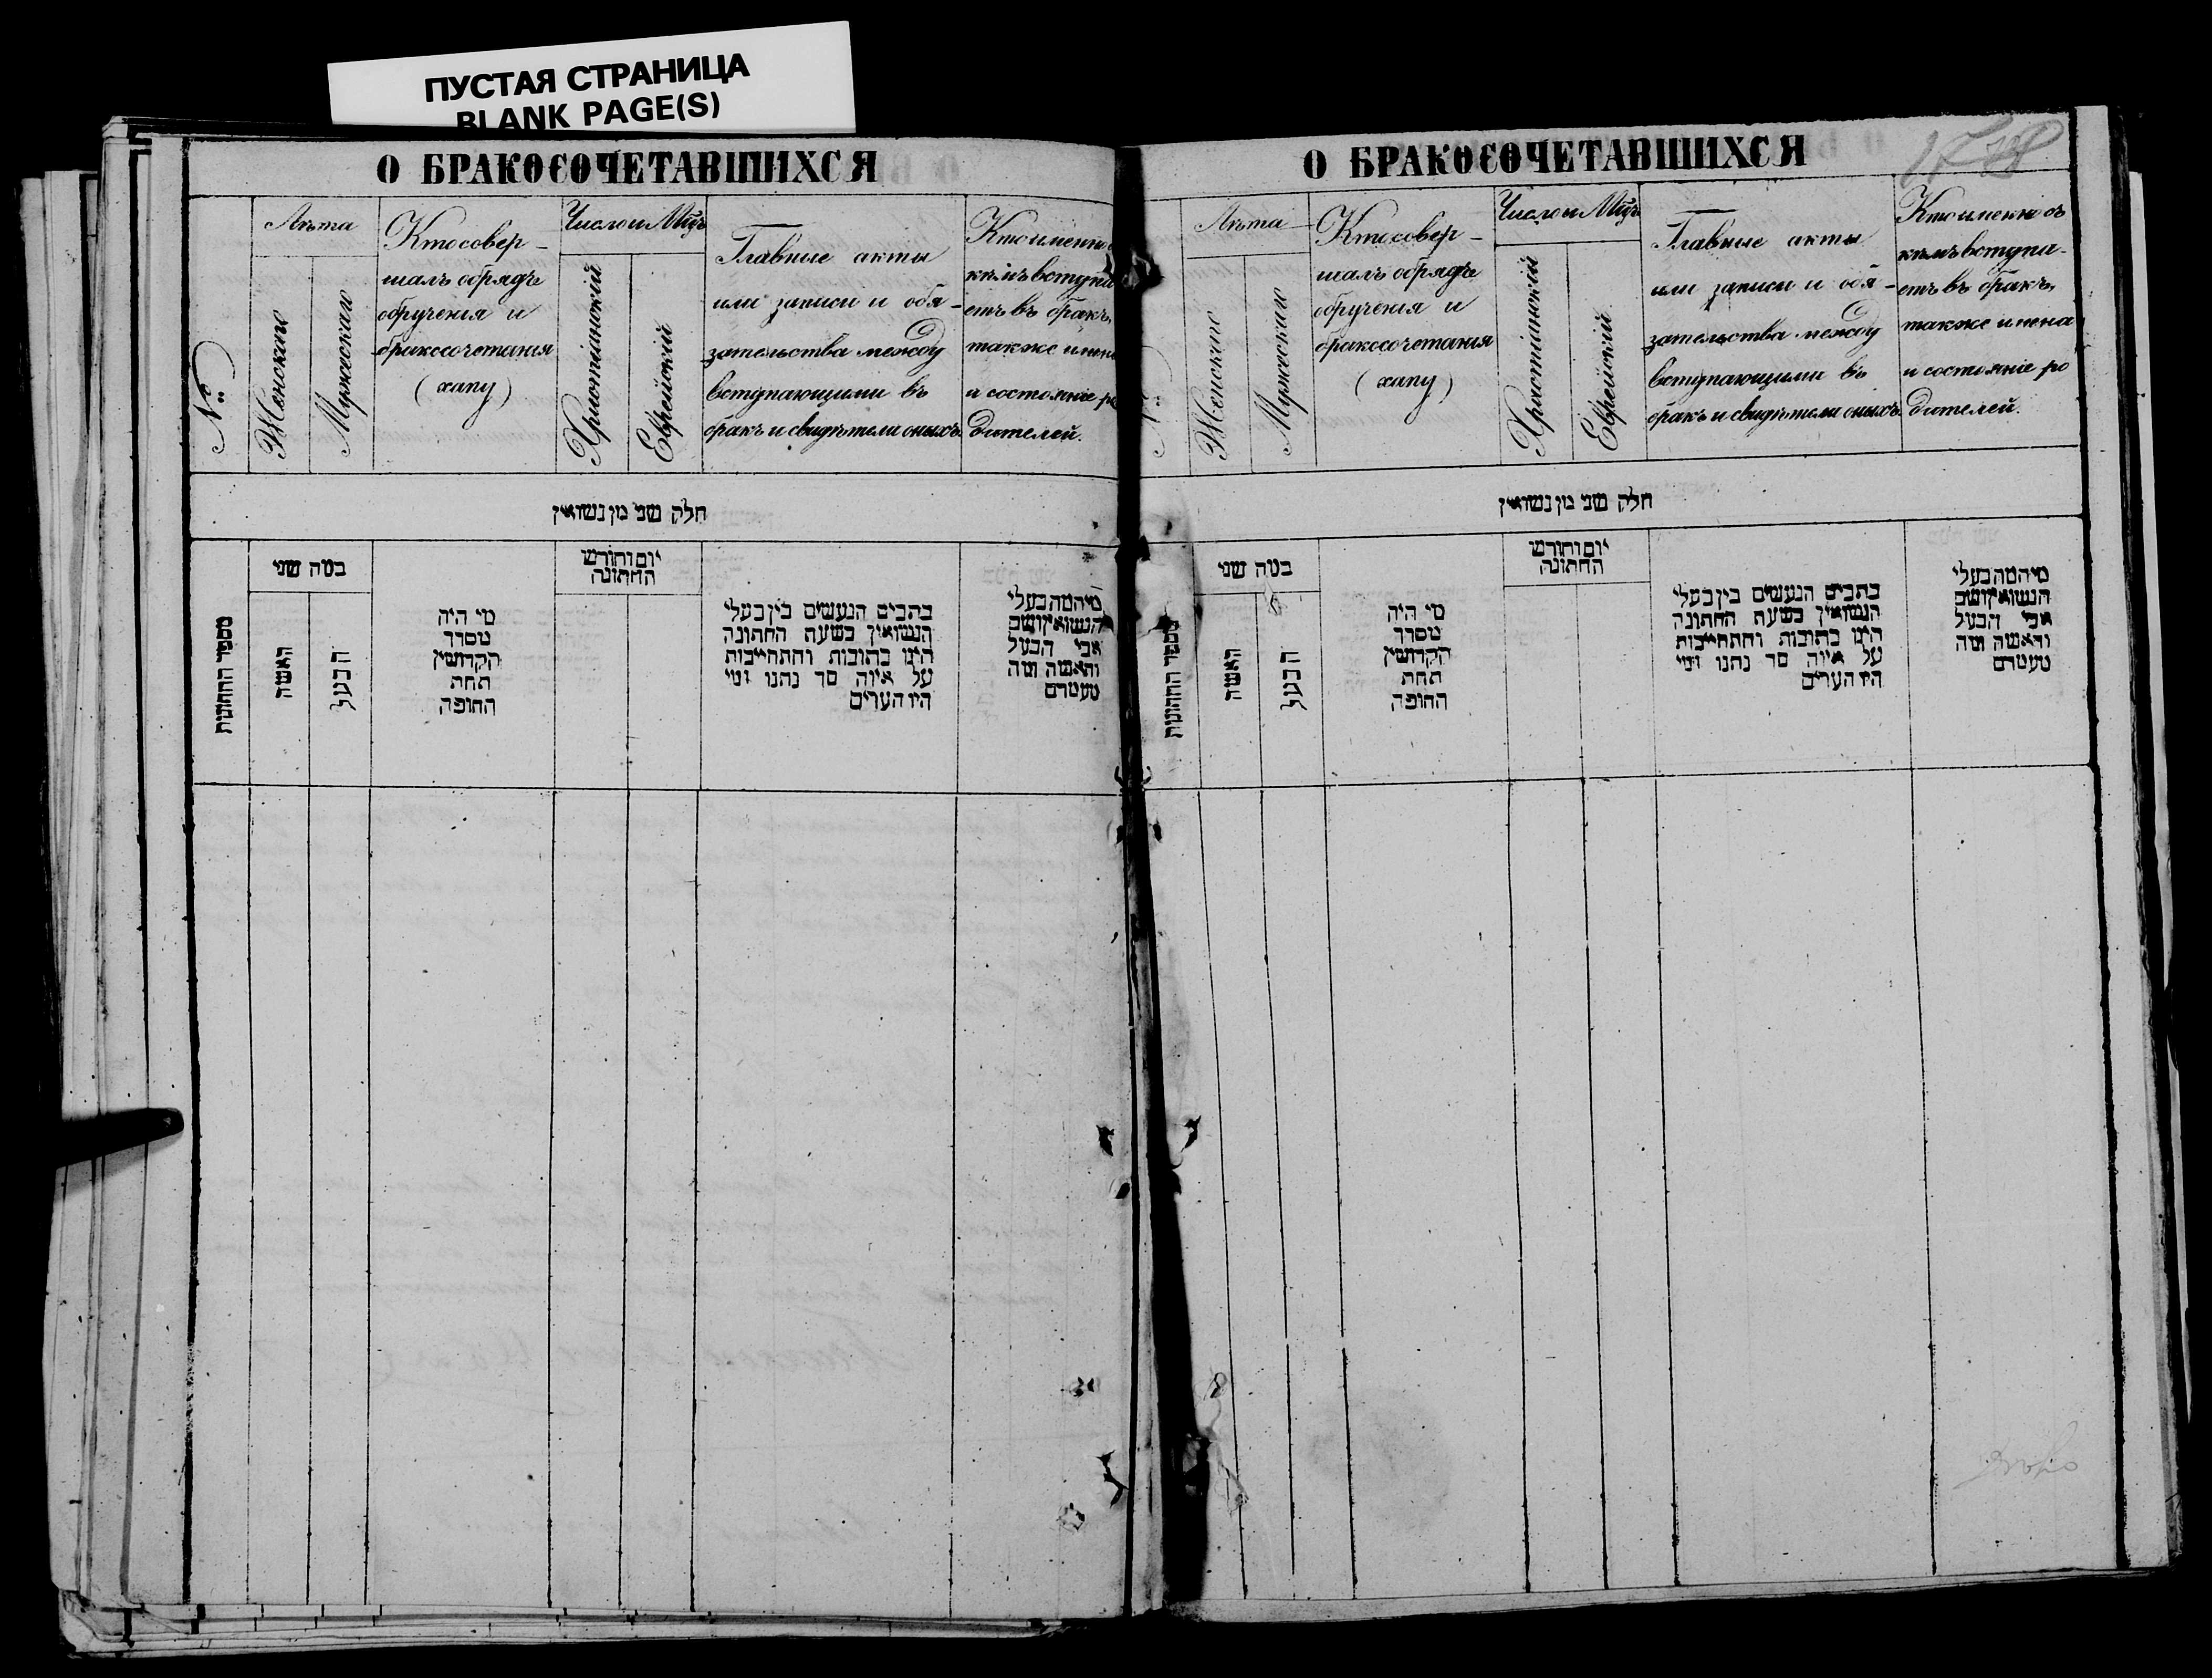 ПУСТАЯ СТРАНИЦА
BLANK PAGE(S)
О БРАКОСОЧЕТАВШИХСЯ
№
Лѣта
Женскаго
Мужескаго
Кто совер-
шалъ обрядъ
обрученія и
бракосочетанія
(хупу)
Число и Мѣц.
Христіанскій
Еврейскій
Главные акты
или записи и обя-
зательства между
вступающими въ
бракъ и свидѣтели оныхъ.
Кто именно
кѣмъ вступа
етъ въ бракъ,
также имена
и состояніе ро
дителей.
חלק שני מן נשואין
מספר החתונות
במה שני
האשה
הבעל
מי היה
מסדר
הקדושין
תחת
החופה
יום וחודש
החתונה
כתבים הנעשים בין בעלי
הנשואין בשעת החתונה
היינו כתובות והתחייבות
על איזה סך נתנו ומי
היו העדים
מי המה בעלי
הנשואין ושם
אבי הבעל
והאשה ומה
מעמדם
О БРАКОСОЧЕТАВШИХСЯ
№
Лѣта
Женскаго
Мужескаго
Кто совер-
шалъ обрядъ
обрученія и
бракосочетанія
(хупу)
Число и Мѣц.
Христіанскій
Еврейскій
Главные акты
или записи и обя-
зательства между
вступающими въ
бракъ и свидѣтели оныхъ.
Кто именно съ
кѣмъ вступа-
етъ въ бракъ,
также имена
и состояніе ро
дителей.
חלק שני מן נשואין
מספר החתונות
במה שני
האשה
הבעל
מי היה
מסדר
הקדושין
תחת
החופה
יום וחודש
החתונה
כתבים הנעשים בין בעלי
הנשואין בשעת החתונה
היינו כתובות והתחייבות
על איזה סך נתנו ומי
היו העדים
מי המה בעלי
הנשואין ושם
אבי הבעל
והאשה ומה
מעמדם